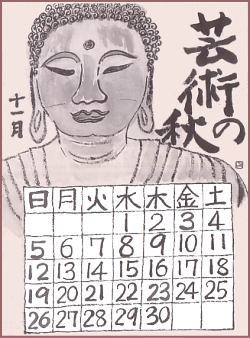 芸術の
秋
十一月
日 月 火 水 木 金 土
1 2 3 4
5 6 7 8 9 10 11
12 13 14 15 16 17 18
19 20 21 22 23 24 25
26 27 28 29 30